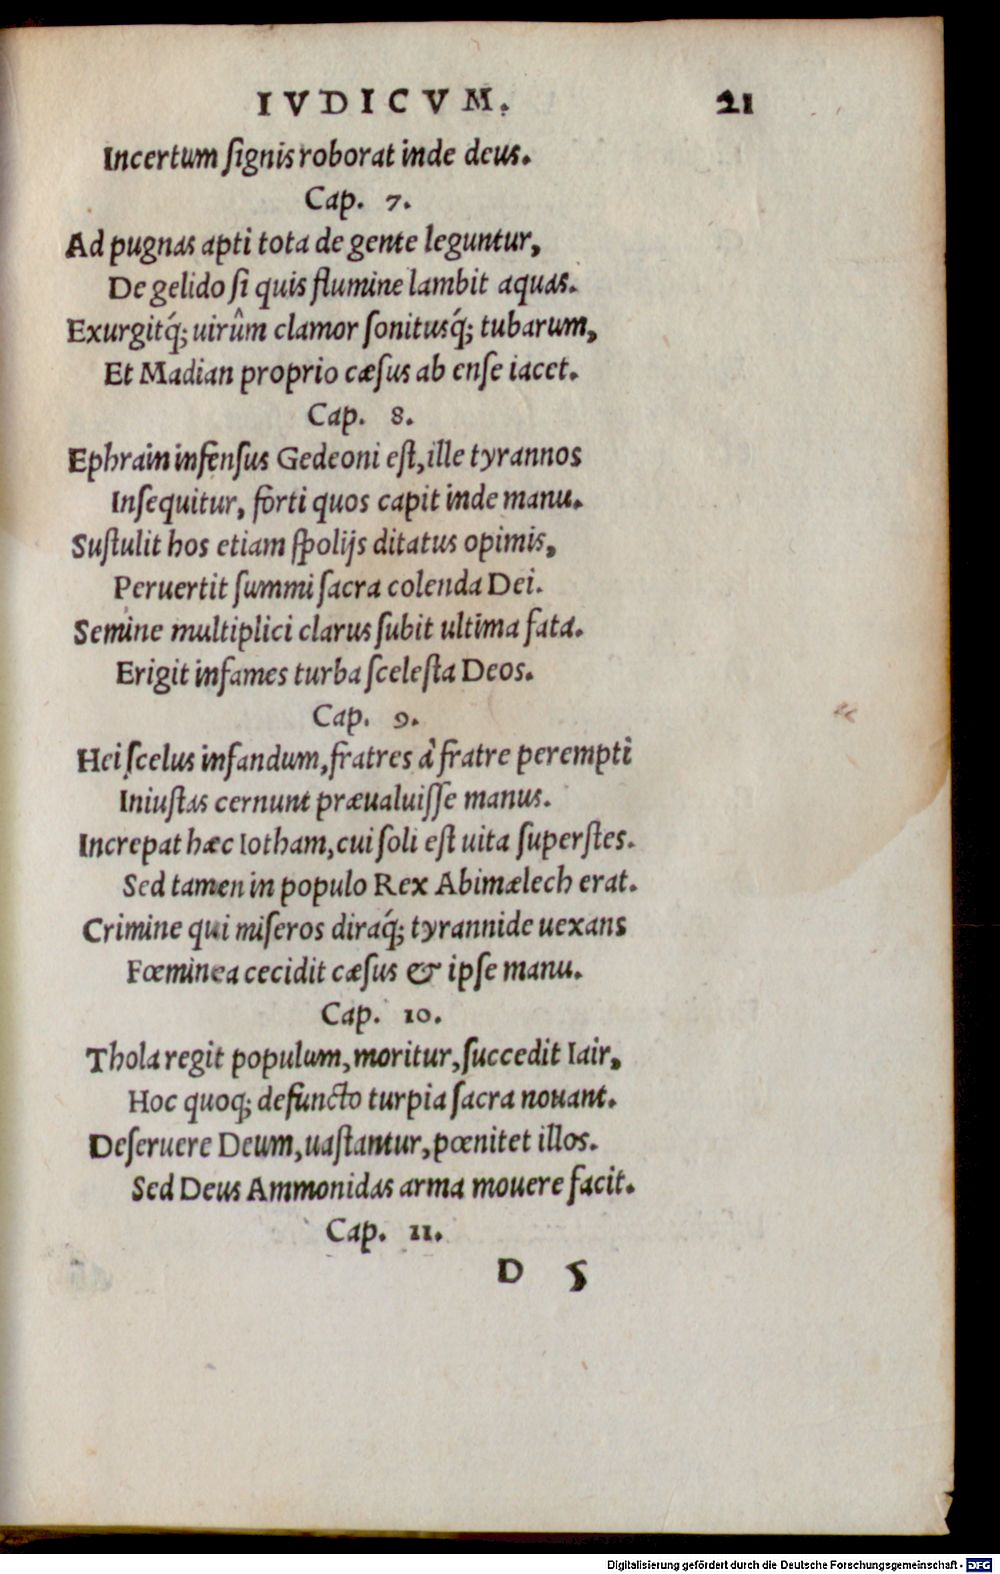 IVDICVM. 21
Incertum ſignis roborat inde deus.
Cap. 7.
Ad pugnas apti tota de gente leguntur,
De gelido ſi quis flumine lambit aquas.
Exurgitq́; uirûm clamor ſonitusq́; tubarum,
Et Madian proprio cæſus ab enſe iacet.
Cap. 8.
Ephrain infenſus Gedeoni eſt, ille tyrannos
Inſequitur, forti quos capit inde manu.
Suſtulit hos etiam ſpolijs ditatus opimis,
Peruertit ſummi ſacra colenda Dei.
Semine multiplici clarus ſubit ultima fata.
Erigit infames turba ſceleſta Deos.
Cap. 9.
Hei ſcelus infandum, fratres à fratre perempti
Iniuſtas cernunt præualuiſſe manus.
Increpat hæc Iotham, cui ſoli eſt uita ſuperſtes.
Sed tamen in populo Rex Abimælech erat.
Crimine qui miſeros diraq́; tyrannide uexans
Fœminea cecidit cæſus & ipſe manu.
Cap. 10.
Thola regit populum, moritur, ſuccedit Iair,
Hoc quoq; defuncto turpia ſacra nouant.
Deſeruere Deum, uaſtantur, pœnitet illos.
Sed Deus Ammonidas arma mouere facit.
Cap. 11.
D 5
Digitalisierung gefördert durch die Deutsche Forschungsgemeinschaft - DFG